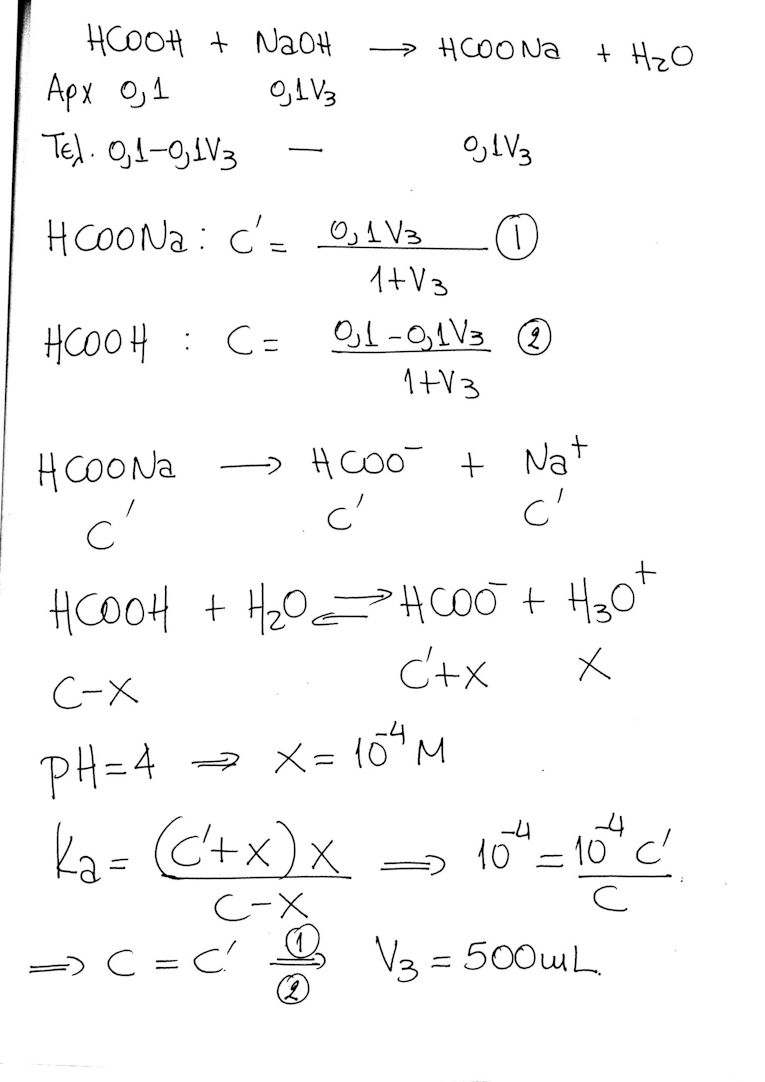 HCOOH + NaOH → HCOONa + H₂O
Αρχ 0,1 0,1V₃
Τελ. 0,1-0,1V₃ — 0,1V₃
HCOONa : C' = 0,1V₃ / 1+V₃ ①
HCOOH : C = 0,1-0,1V₃ / 1+V₃ ②
HCOONa → HCOO⁻ + Na⁺
C' C' C'
HCOOH + H₂O ⇌ HCOO⁻ + H₃O⁺
C-x C'+x x
pH=4 ⇒ x = 10⁻⁴ M
Ka = (C'+x)x / C-x ⇒ 10⁻⁴ = 10⁻⁴ C' / C
⇒ C = C' ①⇒② V₃ = 500mL.